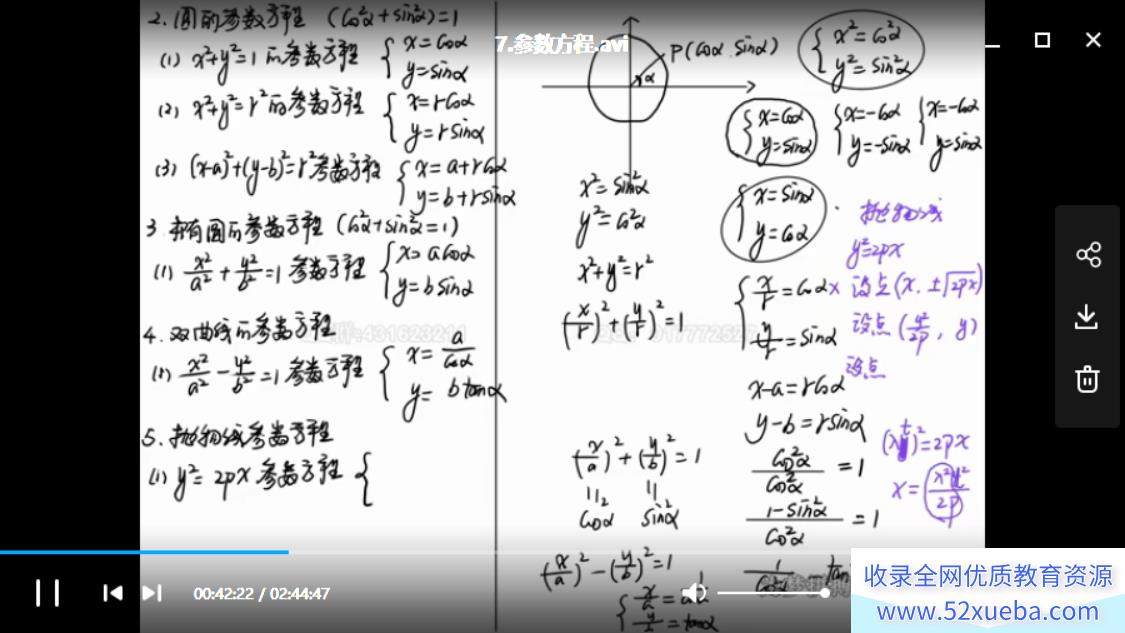 2. 圆的参数方程 (cos²α+sin²α)=1
(1) x²+y²=1的参数方程 { x=cosα
y=sinα
(2) x²+y²=r²的参数方程 { x=rcosα
y=rsinα
(3) (x-a)²+(y-b)²=r²参数方程 { x=a+rcosα
y=b+rsinα
3. 椭圆的参数方程 (cos²α+sin²α=1)
(1) x²/a² + y²/b² =1 参数方程 { x=acosα
y=bsinα
4. 双曲线的参数方程
(1) x²/a² - y²/b² =1 参数方程 { x= a/cosα
y= btanα
5. 抛物线参数方程
(1) y²=2px 参数方程 {
7.参数方程.avi
P(cosα, sinα)
α
{ x²=cos²α
y²=sin²α
{ x=cosα
y=sinα
{ x=-cosα
y=-sinα
{ x=-cosα
y=sinα
x²=sin²α
y²=cos²α
{ x=sinα
y=cosα
x²+y²=r²
(x/r)²+(y/r)²=1
{ x/r=cosα
y/r=sinα
x-a=rcosα
y-b=rsinα
(x/a)²+(y/b)²=1
cos²α sin²α
cos²α/cos²α =1
1-sin²α/cos²α =1
(x/a)²-(y/b)²=1
1/cosα tan
y/b=tanα
抛物线
y²=2px
x 设点(x, ±√2px)
设点(y²/2p, y)
设点
00:42:22 / 02:44:47
收录全网优质教育资源
www.52xueba.com